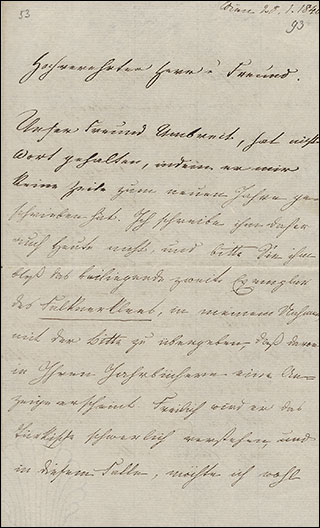 53
Wien 28. 1. 1840
93
Hochverehrter Herr u Freund.
Unser Freund Umbreit, hat nicht
Wort gehalten, indem er mir
keine Zeile zum neuen Jahre ge-
schrieben hat. Ich schreibe ihm daher
auch heute nicht, und bitte Sie ihm
bloß das beiliegende zweite Exemplar
des Falknerklees, in meinem Nahmen
mit der Bitte zu übergeben daß davon
in Ihren Jahrbüchern eine An-
zeige erscheint. Freilich wird er das
Türkische schwerlich verstehen und
in diesem Falle, möchte ich wohl